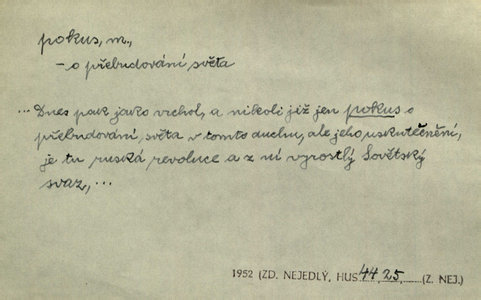 pokus, m.,
– o přebudování světa
... Dnes pak jako vrchol, a nikoli již jen pokus o
přebudování světa v tomto duchu, ale jeho uskutečnění,
je tu ruská revoluce a z ní vyrostlý Sovětský
svaz, ...
1952 (ZD. NEJEDLÝ, HUS 44, 25, ...... (Z. NEJ.)